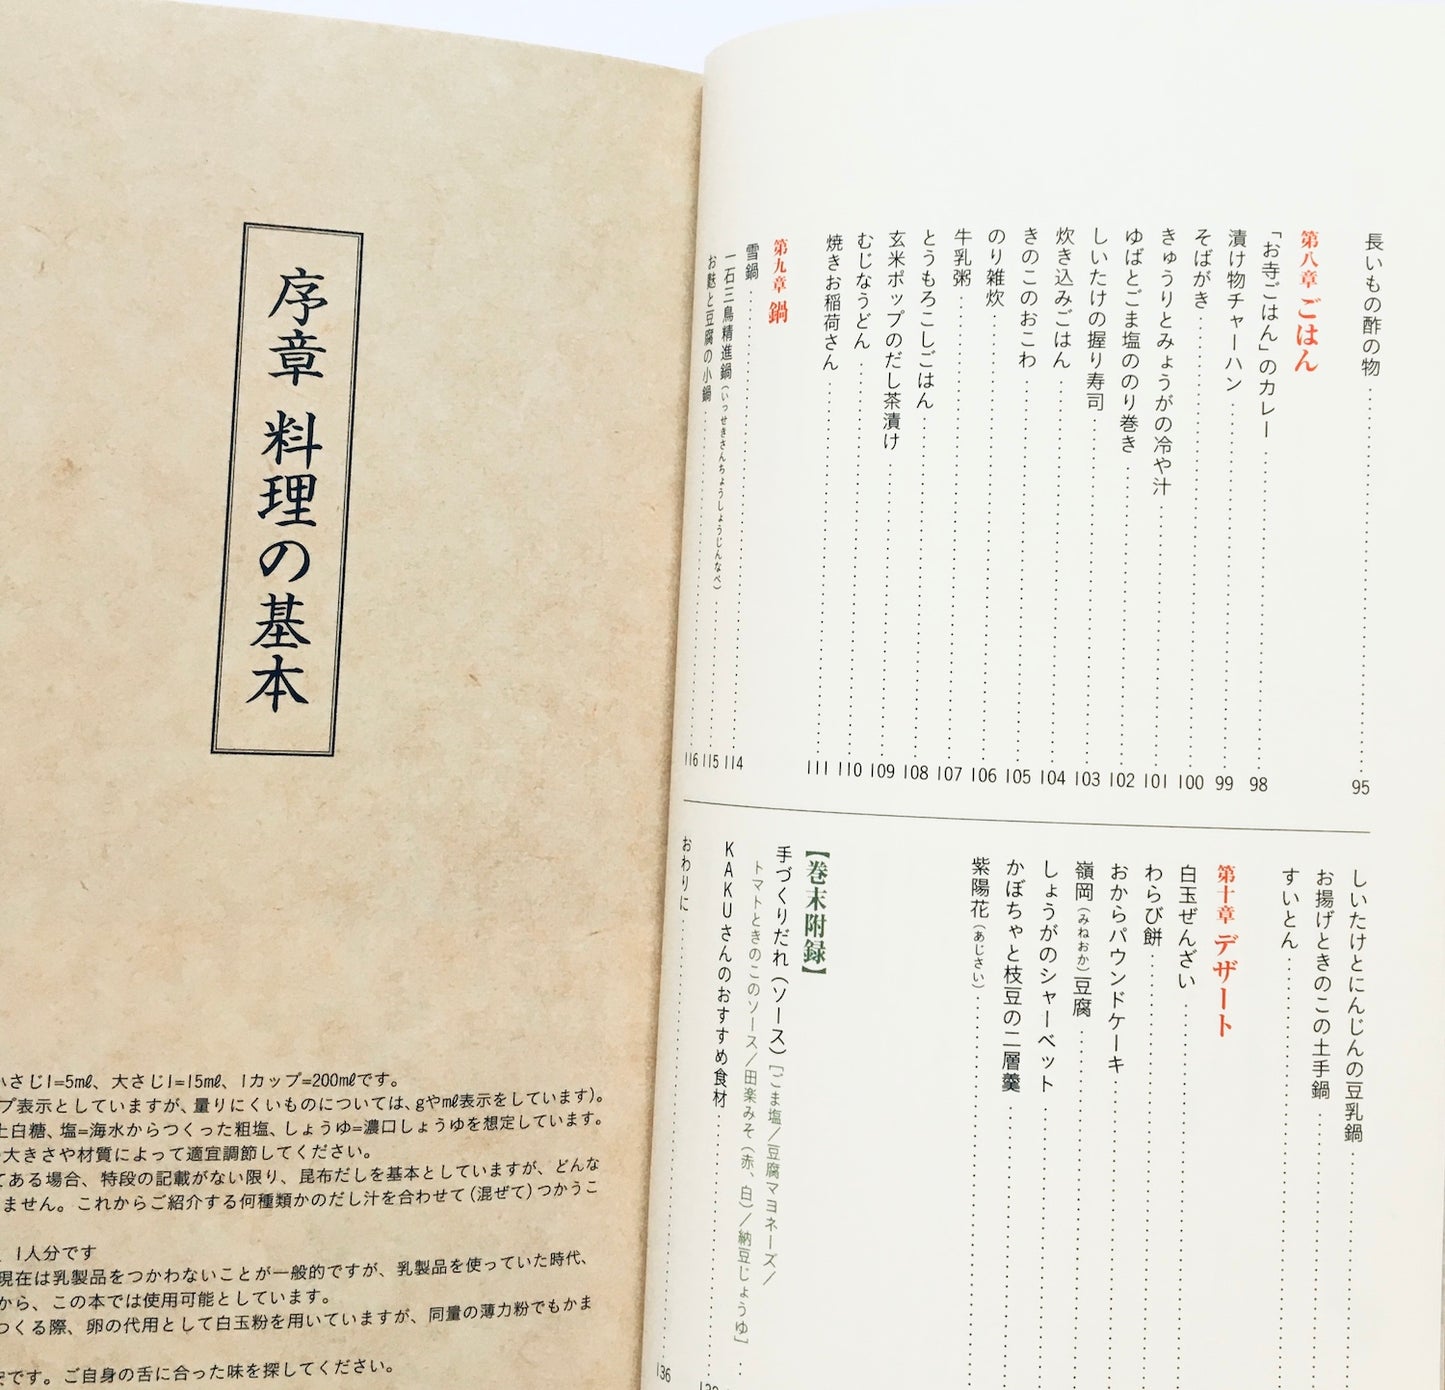 長いもの酢の物 95
第八章 ごはん
「お寺ごはん」のカレー 98
漬け物チャーハン 99
そばがき 100
きゅうりとみょうがの冷や汁 101
ゆばとごま塩ののり巻き 102
しいたけの握り寿司 103
炊き込みごはん 104
きのこのおこわ 105
のり雑炊 106
牛乳粥 107
とうもろこしごはん 108
玄米ポップのだし茶漬け 109
むじなうどん 110
焼きお稲荷さん 111
第九章 鍋
雪鍋 114
一石三鳥精進鍋(いっせきさんちょうしょうじんなべ) 115
お麩と豆腐の小鍋 116
しいたけとにんじんの豆乳鍋
お揚げときのこの土手鍋
すいとん
第十章 デザート
白玉ぜんざい
わらび餅
おからパウンドケーキ
嶺岡(みねおか)豆腐
しょうがのシャーベット
かぼちゃと枝豆の二層羹
紫陽花(あじさい)
【巻末附録】
手づくりだれ(ソース)[ごま塩/豆腐マヨネーズ/
トマトときのこのソース/田楽みそ(赤、白)/納豆じょうゆ]
KAKUさんのおすすめ食材
おわりに 136
序章 料理の基本
小さじ1=5㎖、大さじ1=15㎖、1カップ=200㎖です。
プ表示としていますが、量りにくいものについては、gや㎖表示をしています)。
上白糖、塩=海水からつくった粗塩、しょうゆ=濃口しょうゆを想定しています。
大きさや材質によって適宜調節してください。
てある場合、特段の記載がない限り、昆布だしを基本としていますが、どんな
ません。これからご紹介する何種類かのだし汁を合わせて(混ぜて)つかうこ
、1人分です
現在は乳製品をつかわないことが一般的ですが、乳製品を使っていた時代、
から、この本では使用可能としています。
つくる際、卵の代用として白玉粉を用いていますが、同量の薄力粉でもかま
安です。ご自身の舌に合った味を探してください。